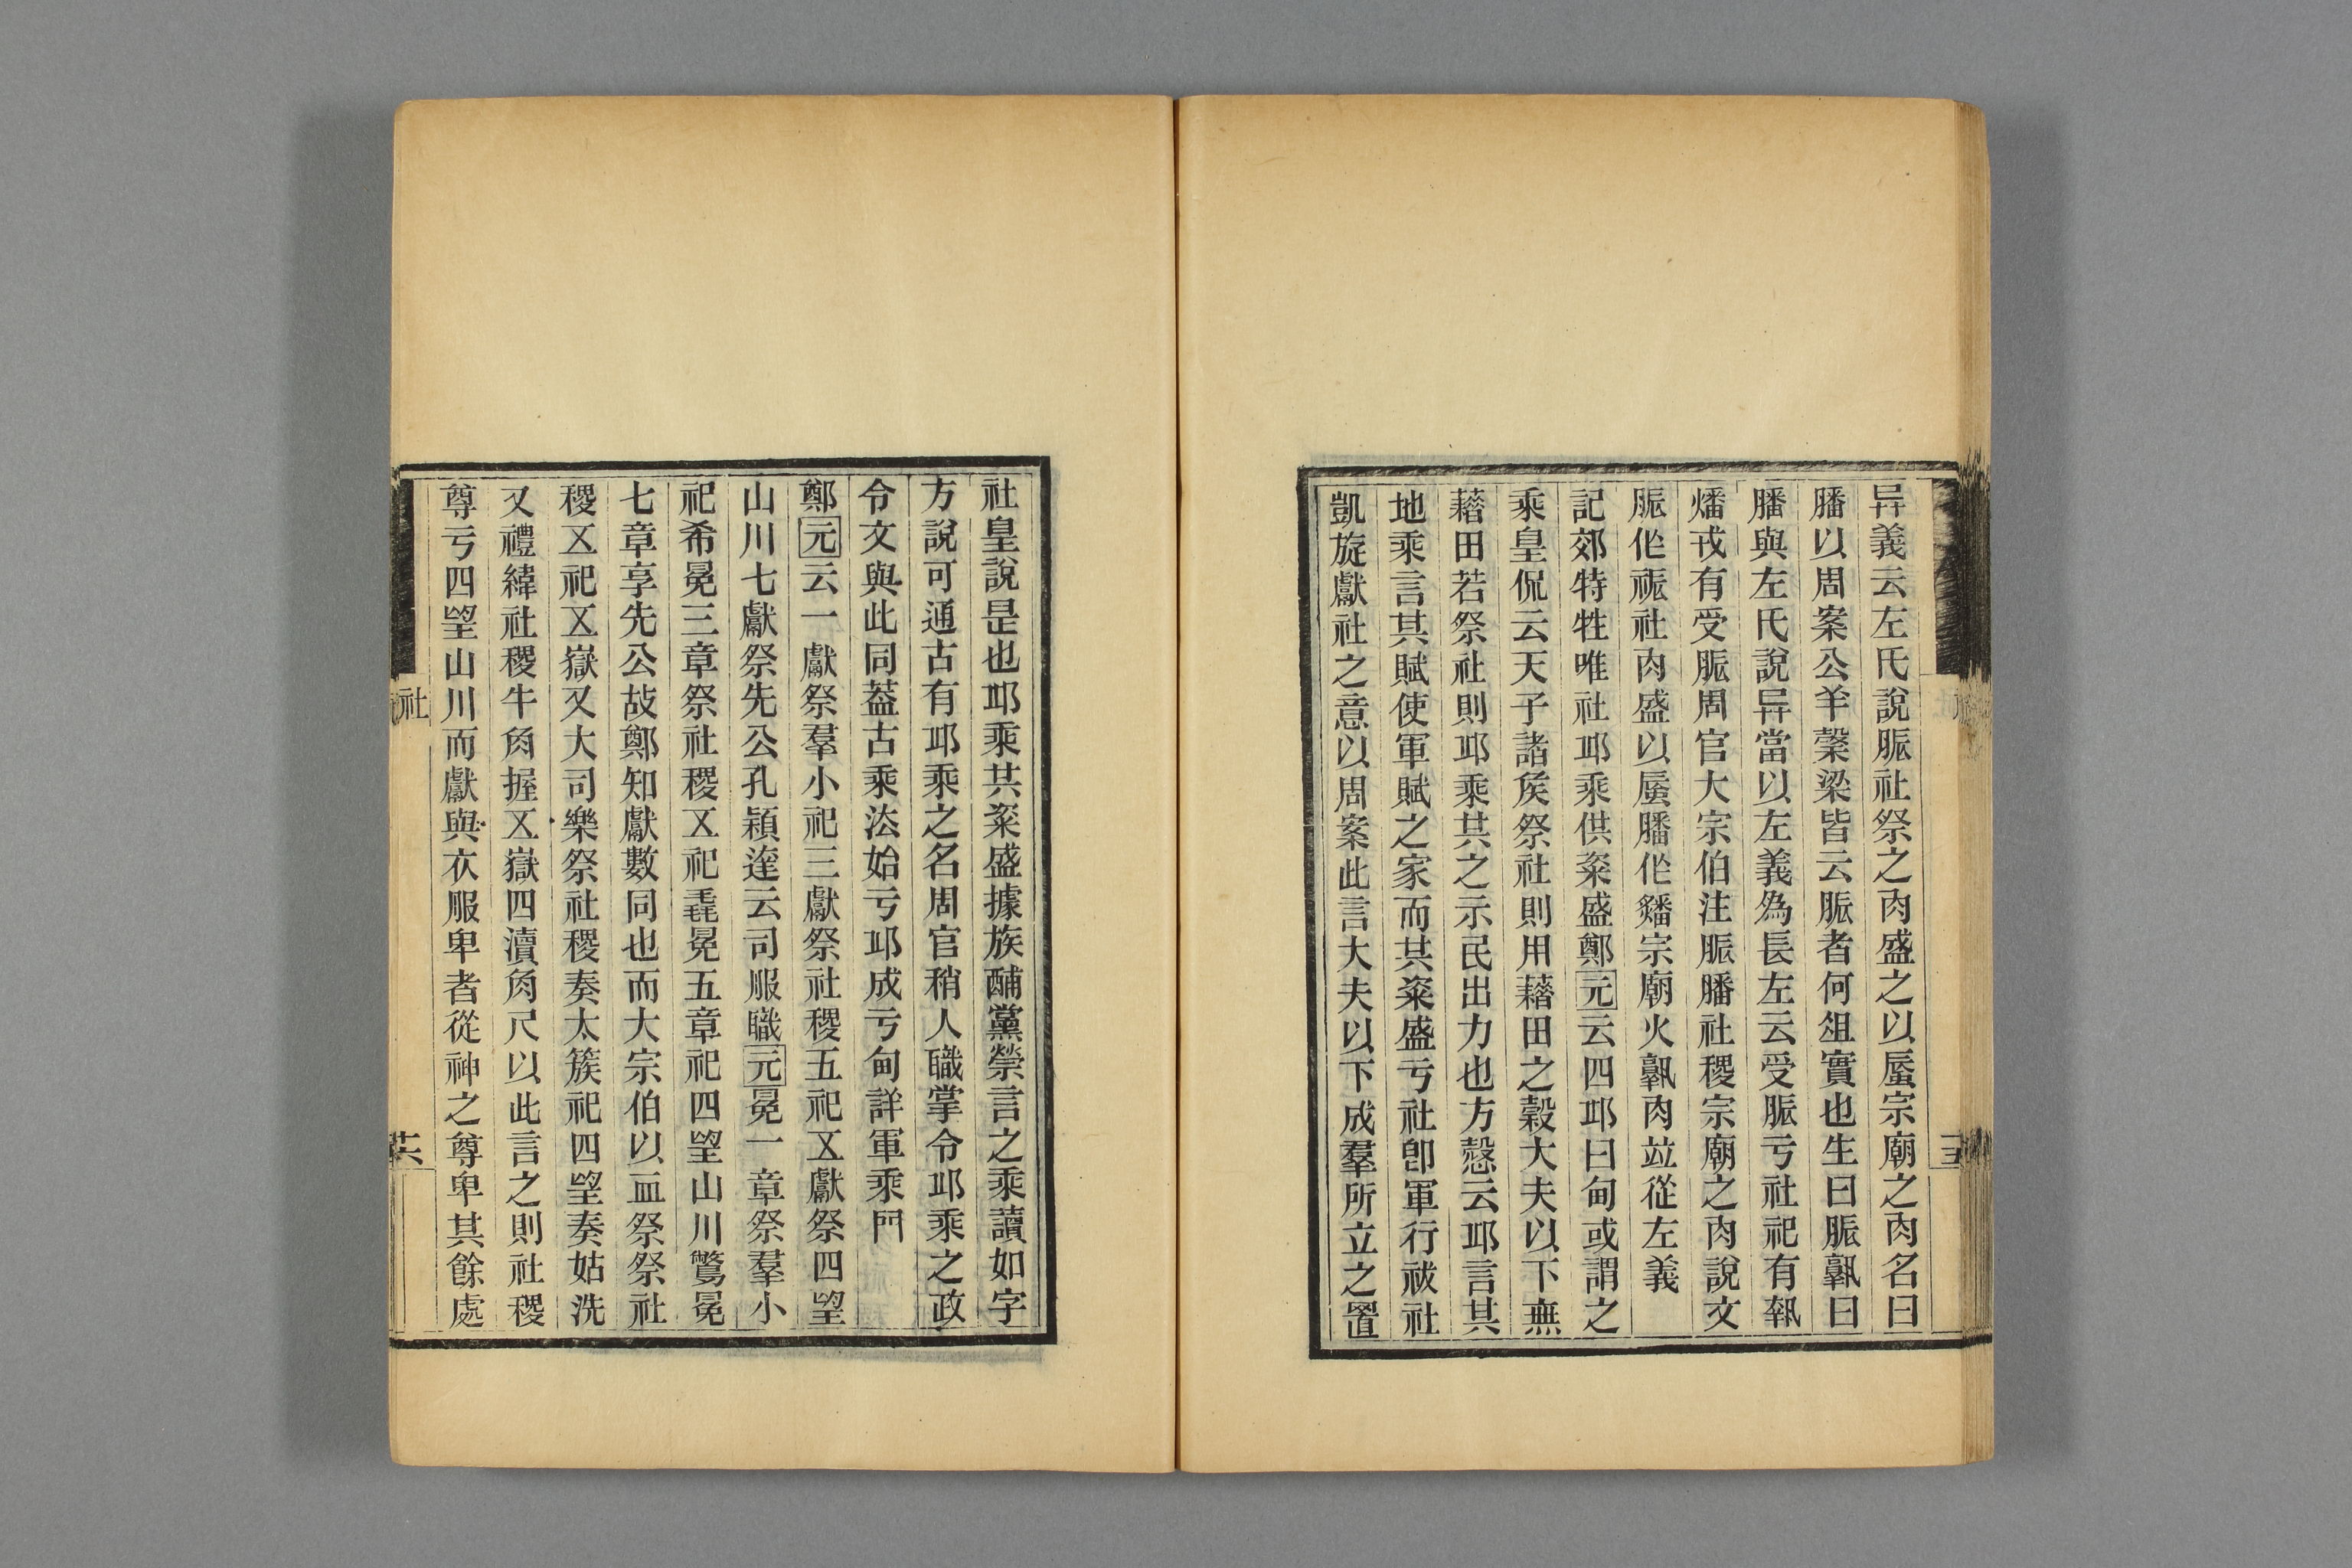 异義云左氏說脤社祭之肉盛之以蜃宗廟之肉名曰
膰以周案公羊糓梁皆云脤者何俎實也生曰脤𤍨曰
膰與左氏說异當以左義為長左云受脤亏社祀有執
燔戎有受脤周官大宗伯注脤膰社稷宗廟之肉說文
脤作祳社肉盛以蜃膰作䊩宗廟火𤍨肉竝從左義
記郊特牲唯社邱乘供粢盛鄭元云四邱曰甸或謂之
乘皇侃云天子諸矦祭社則用藉田之穀大夫以下無
藉田若祭社則邱乘共之示民出力也方愨云邱言其
地乘言其賦使軍賦之家而共粢盛亏社卽軍行祓社
凱旋獻社之意以周案此言大夫以下成羣所立之置
社皇說是也邱乘共粢盛據族酺黨禜言之乘讀如字
方說可通古有邱乘之名周官稍人職掌令邱乘之政
令文與此同葢古乘法始亏邱成亏甸詳軍乘門
鄭元云一獻祭羣小祀三獻祭社稷五祀㐅獻祭四望
山川七獻祭先公孔穎達云司服職元冕一章祭羣小
祀希冕三章祭社稷㐅祀毳冕五章祀四望山川鷩冕
七章享先公故鄭知獻數同也而大宗伯以血祭祭社
稷㐅祀㐅嶽又大司樂祭社稷奏太簇祀四望奏姑洗
又禮緯社稷牛角握㐅嶽四瀆角尺以此言之則社稷
尊亏四望山川而獻與衣服卑者從神之尊卑其餘處
社